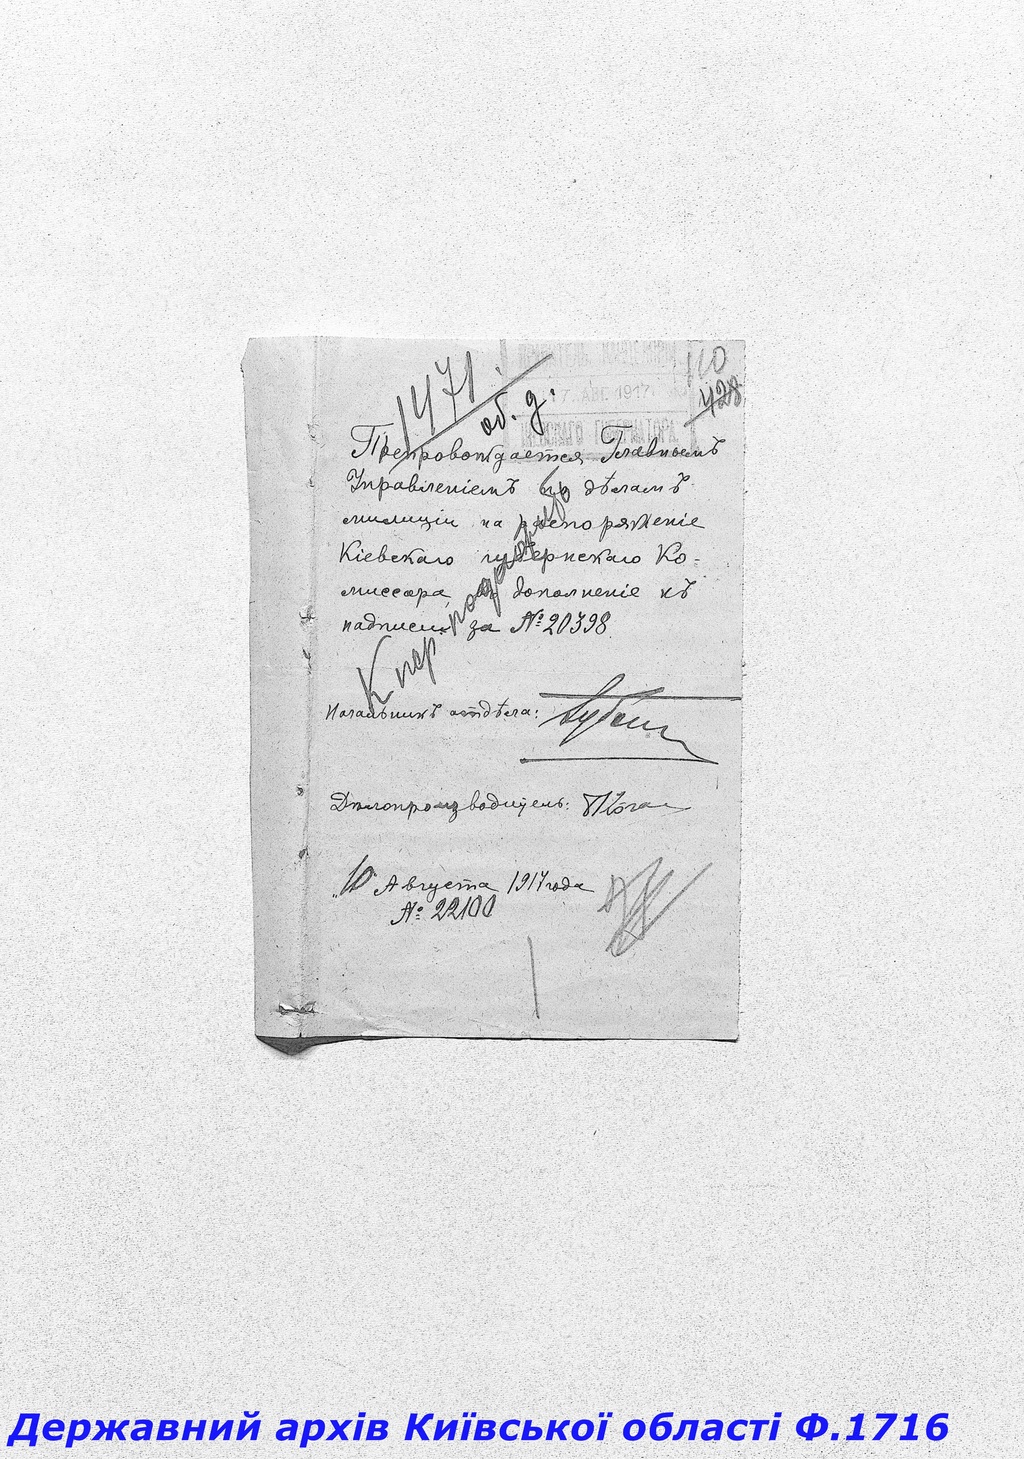 1471.
об. д.
110
428
17 АВГ 1917
Препровождается Главнымъ
Управленіемъ по дѣламъ
милиціи на распоряженіе
Кіевскаго губернскаго Ко-
миссара, въ дополненіе къ
надписи за № 20398.
К пер
Начальникъ отдѣла:
Дѣлопроизводитель:
"10" Августа 1917 года
№ 22100
Державний архів Київської області Ф.1716